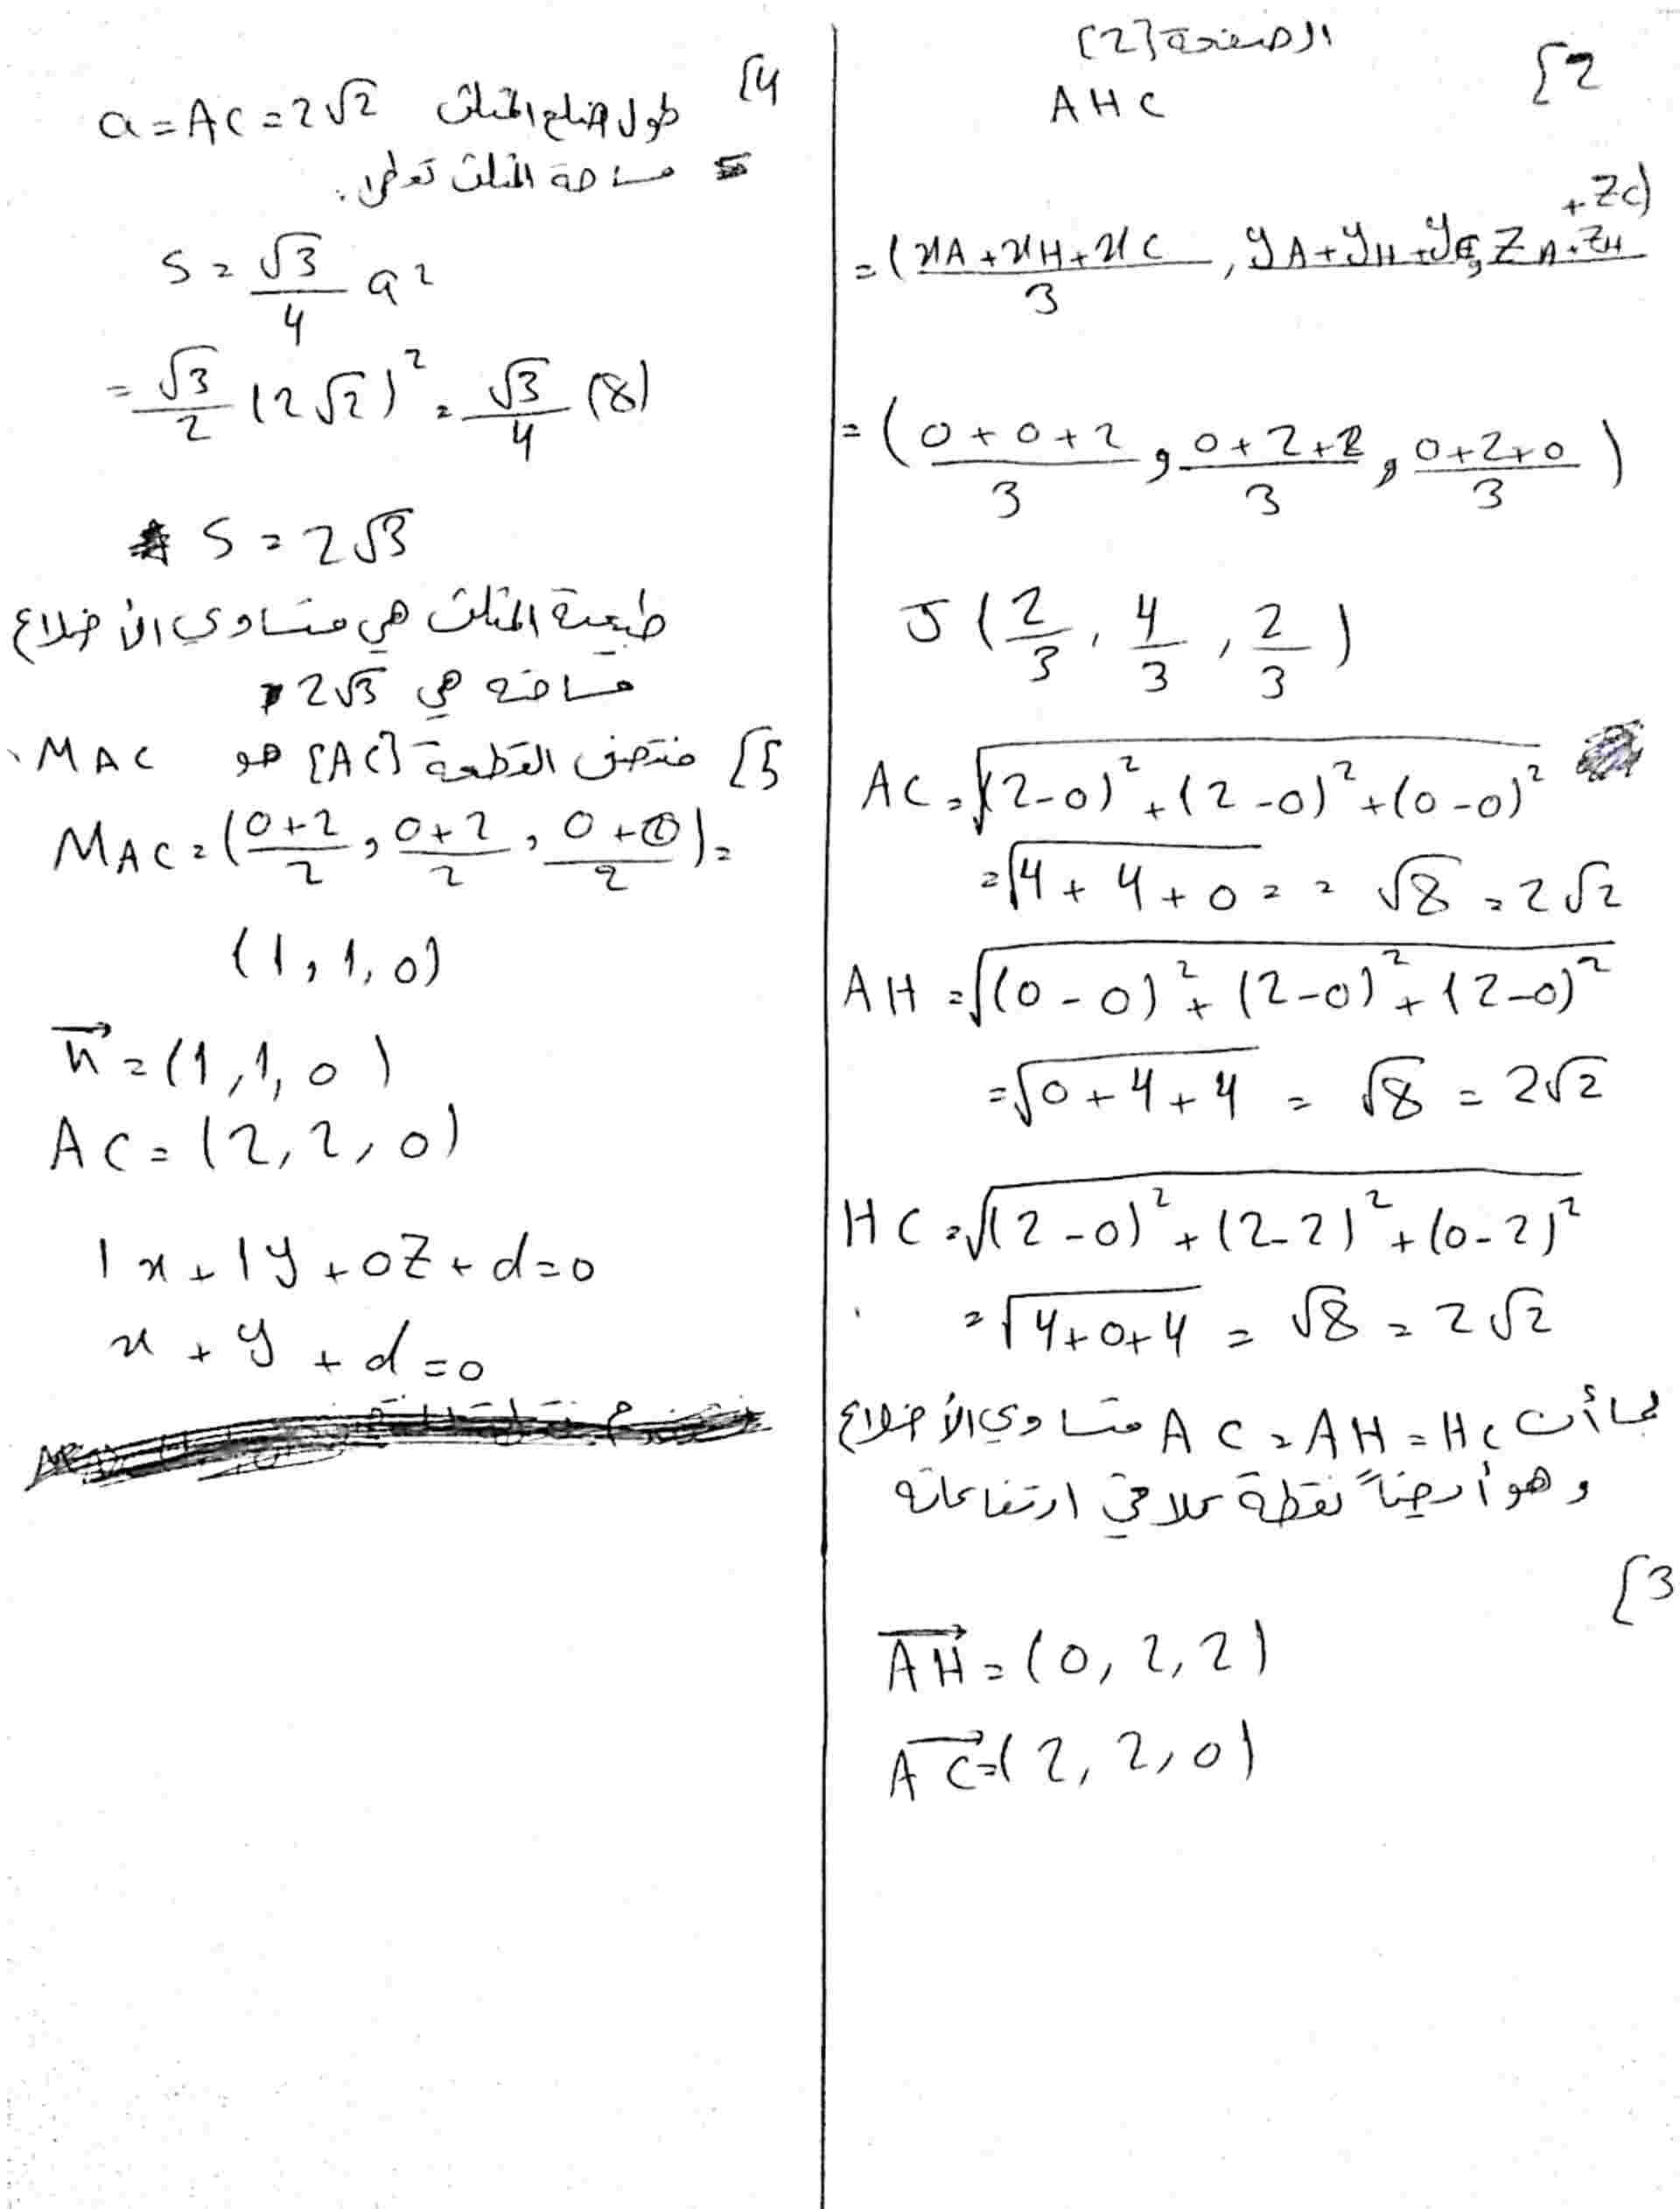 الصفحة [2]
2]
AHC
= (xA + xH + xC / 3 , yA + yH + yC , zA + zH + zC)
= (0 + 0 + 2 / 3 , 0 + 2 + 2 / 3 , 0 + 2 + 0 / 3)
J (2/3 , 4/3 , 2/3)
AC = √((2-0)² + (2-0)² + (0-0)²)
= √(4 + 4 + 0) = = √8 = 2√2
AH = √((0-0)² + (2-0)² + (2-0)²)
= √(0 + 4 + 4) = √8 = 2√2
HC = √((2-0)² + (2-2)² + (0-2)²)
= √(4 + 0 + 4) = √8 = 2√2
بما أن AC = AH = HC متساوي الأضلاع
و هو أيضاً نقطة تلاقي ارتفاعاته
3]
AH = (0, 2, 2)
AC = (2, 2, 0)
4] طول ضلع المثلث a = AC = 2√2
مساحة المثلث تعطى:
S = √3/4 a²
= √3/2 (2√2)² = √3/4 (8)
S = 2√3
طبيعة المثلث هي متساوي الأضلاع
مساحته هي 2√3
5] منتصف القطعة [AC] هو MAC
MAC = (0+2/2 , 0+2/2 , 0+0/2) =
(1, 1, 0)
n = (1, 1, 0)
AC = (2, 2, 0)
1x + 1y + 0z + d = 0
x + y + d = 0